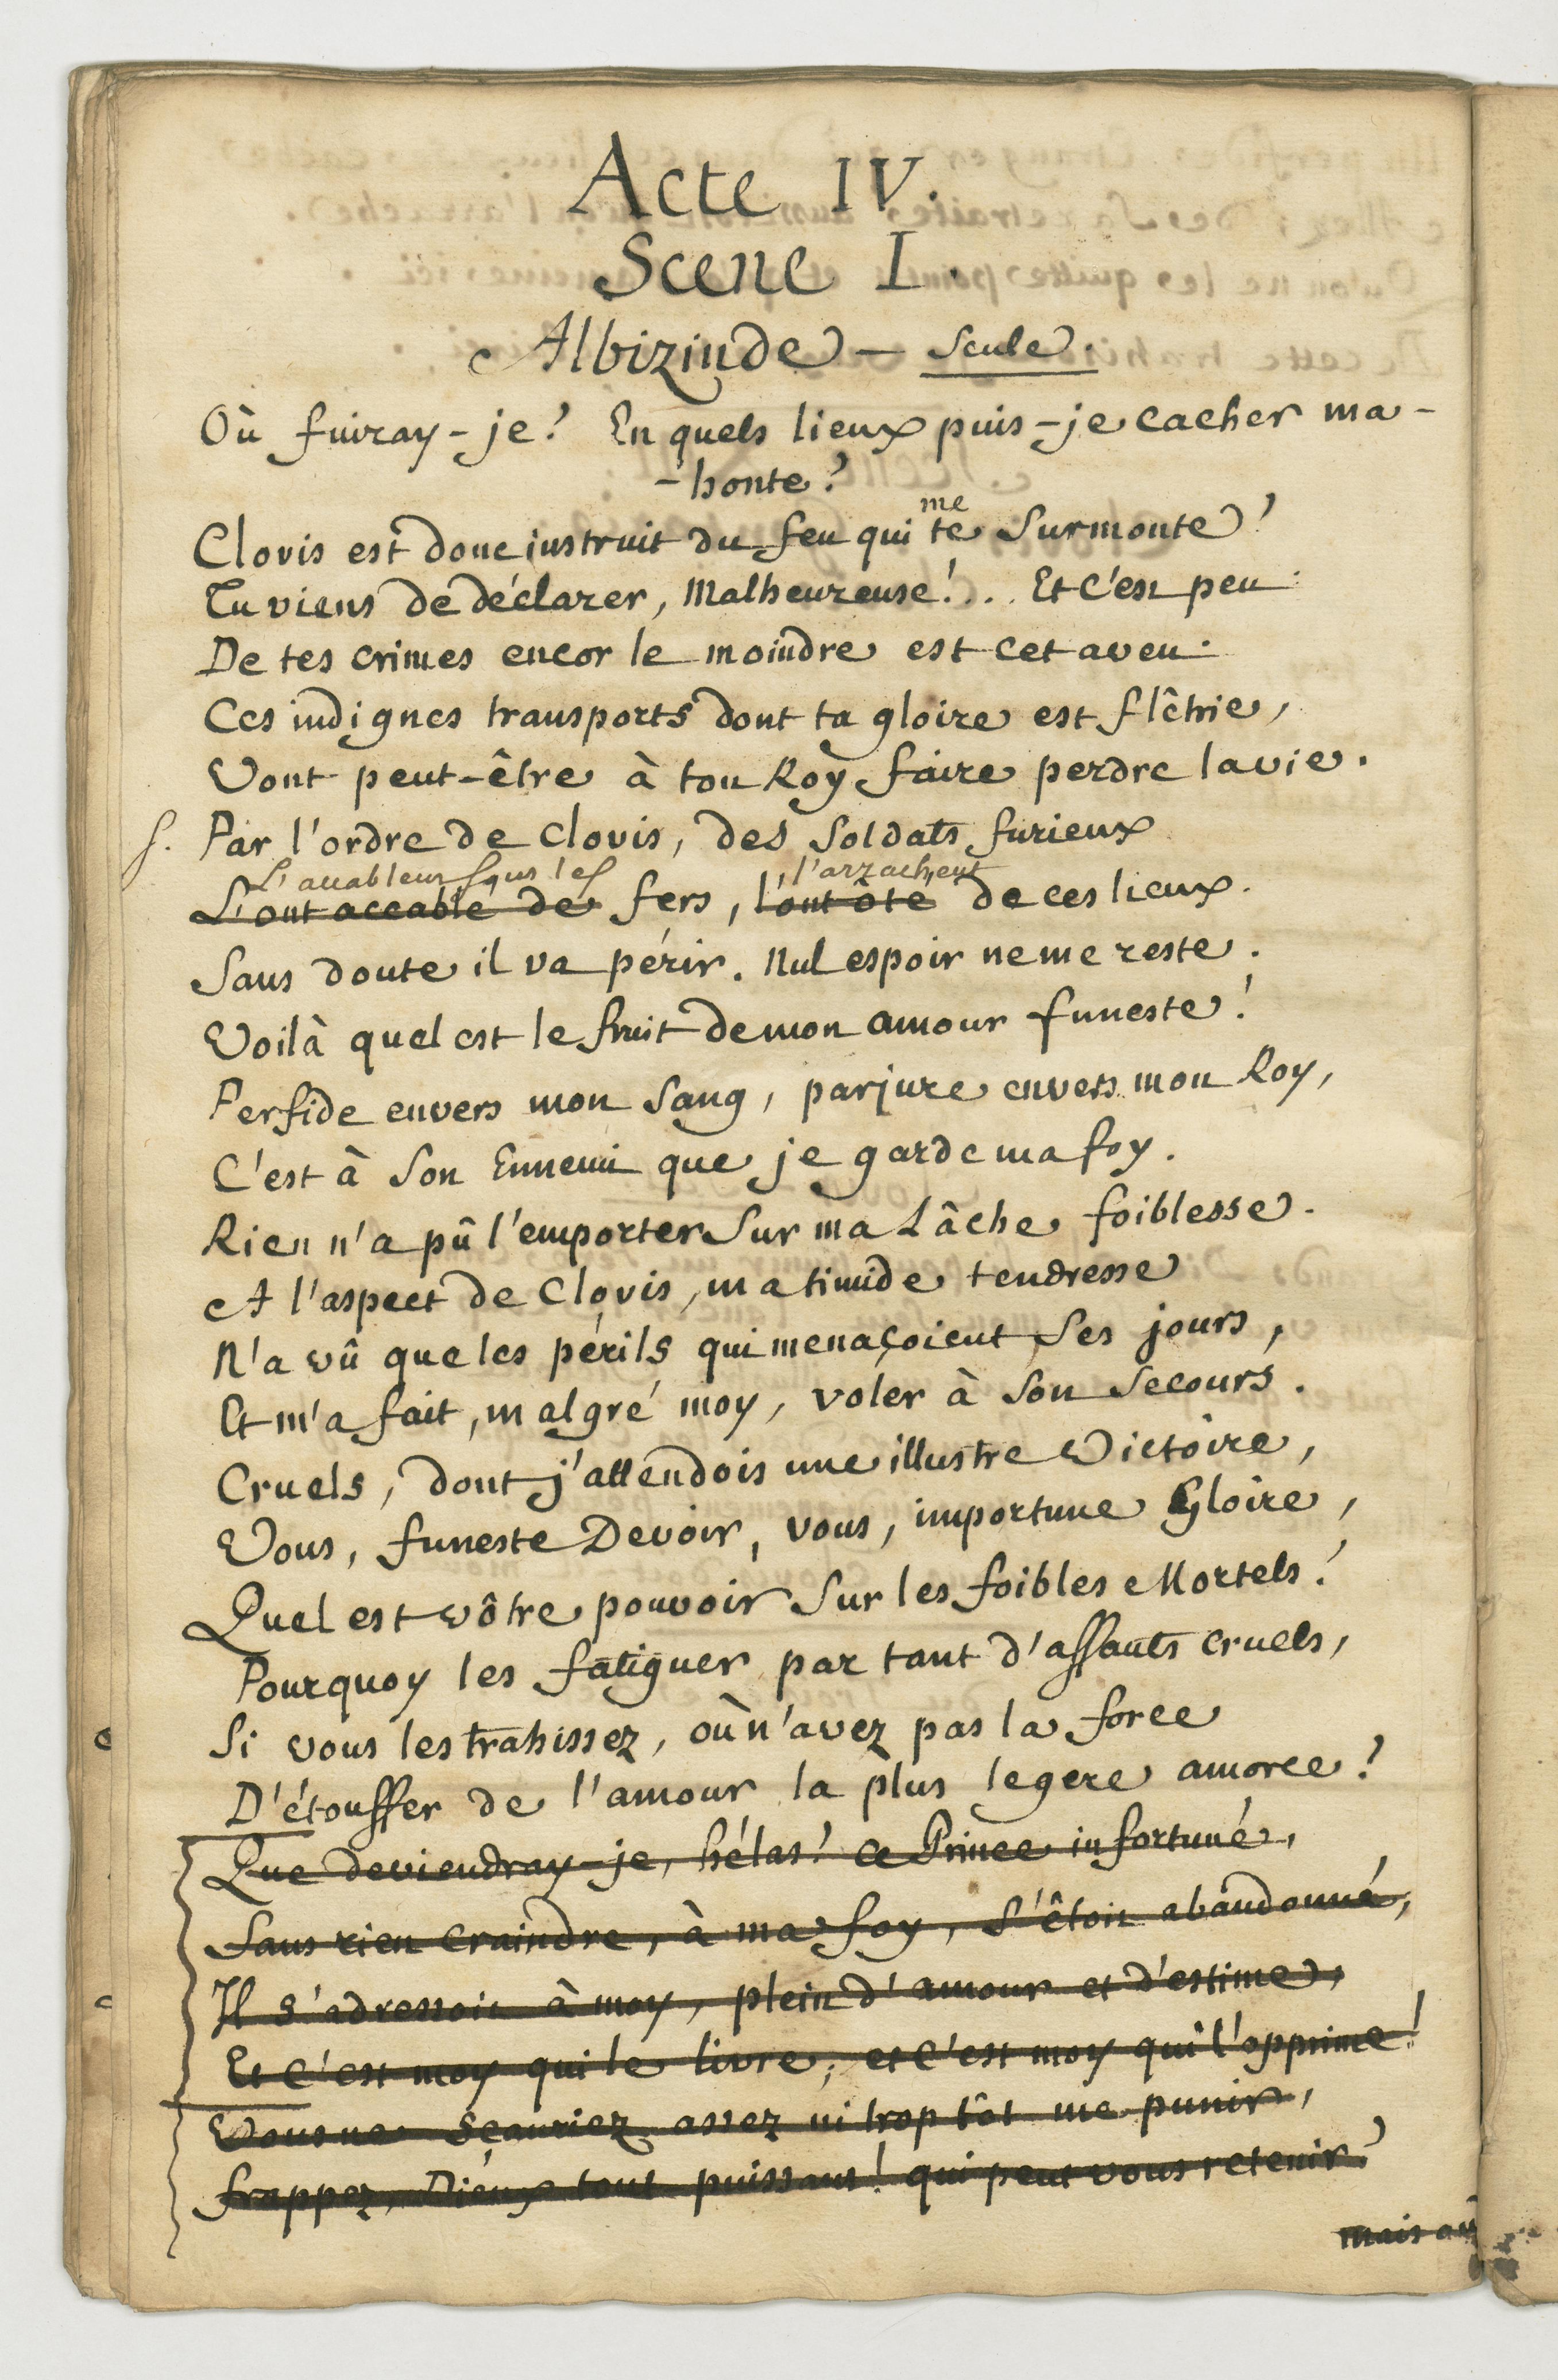 Acte IV.
Scene I.
Albizinde — Seule.
Où fuiray-je? En quels lieux puis-je cacher ma-
-honte?
me
Clovis est donc instruit du feu qui te Surmonte?
Tu viens de déclarer, Malheureuse!... Et c'est peu.
De tes crimes encor le moindre est cet aveu.
Ces indignes transports dont ta gloire est flêtrie,
Vont peut-être à ton Roy faire perdre la vie.
f. Par l'ordre de Clovis, des Soldats furieux
L'accablent sous les l'arrachent
L'ont accablé de fers, l'ont ôté de ces lieux.
Sans doute il va périr. Nul espoir ne me reste.
Voilà quel est le fruit de mon amour funeste!
Perfide envers mon Sang, parjure envers mon Roy,
C'est à Son Ennemi que je garde ma foy.
Rien n'a pû l'emporter Sur ma Lâche foiblesse.
A l'aspect de Clovis, ma timide tendresse
N'a vû que les périls qui menaçoient Ses jours,
Et m'a fait, malgré moy, voler à Son Secours.
Cruels, dont j'attendois une illustre Victoire,
Vous, funeste Devoir, vous, importune Gloire,
Quel est vôtre pouvoir Sur les foibles Mortels!
Pourquoy les fatiguer par tant d'assauts cruels,
Si vous les trahissez, où n'avez pas la force
D'étouffer de l'amour la plus legere amorce?
Que deviendray-je, hélas! Ce Prince infortuné,
Sans rien craindre, à ma foy, S'étoit abandonné,
Il s'adressoit à moy, plein d'amour et d'estime,
Et c'est moy qui le livre, et c'est moy qui l'opprime!
Vous ne sçauriez assez ni trop tôt me punir,
frappez, Dieux tout puissans! qui peut vous retenir?
mais